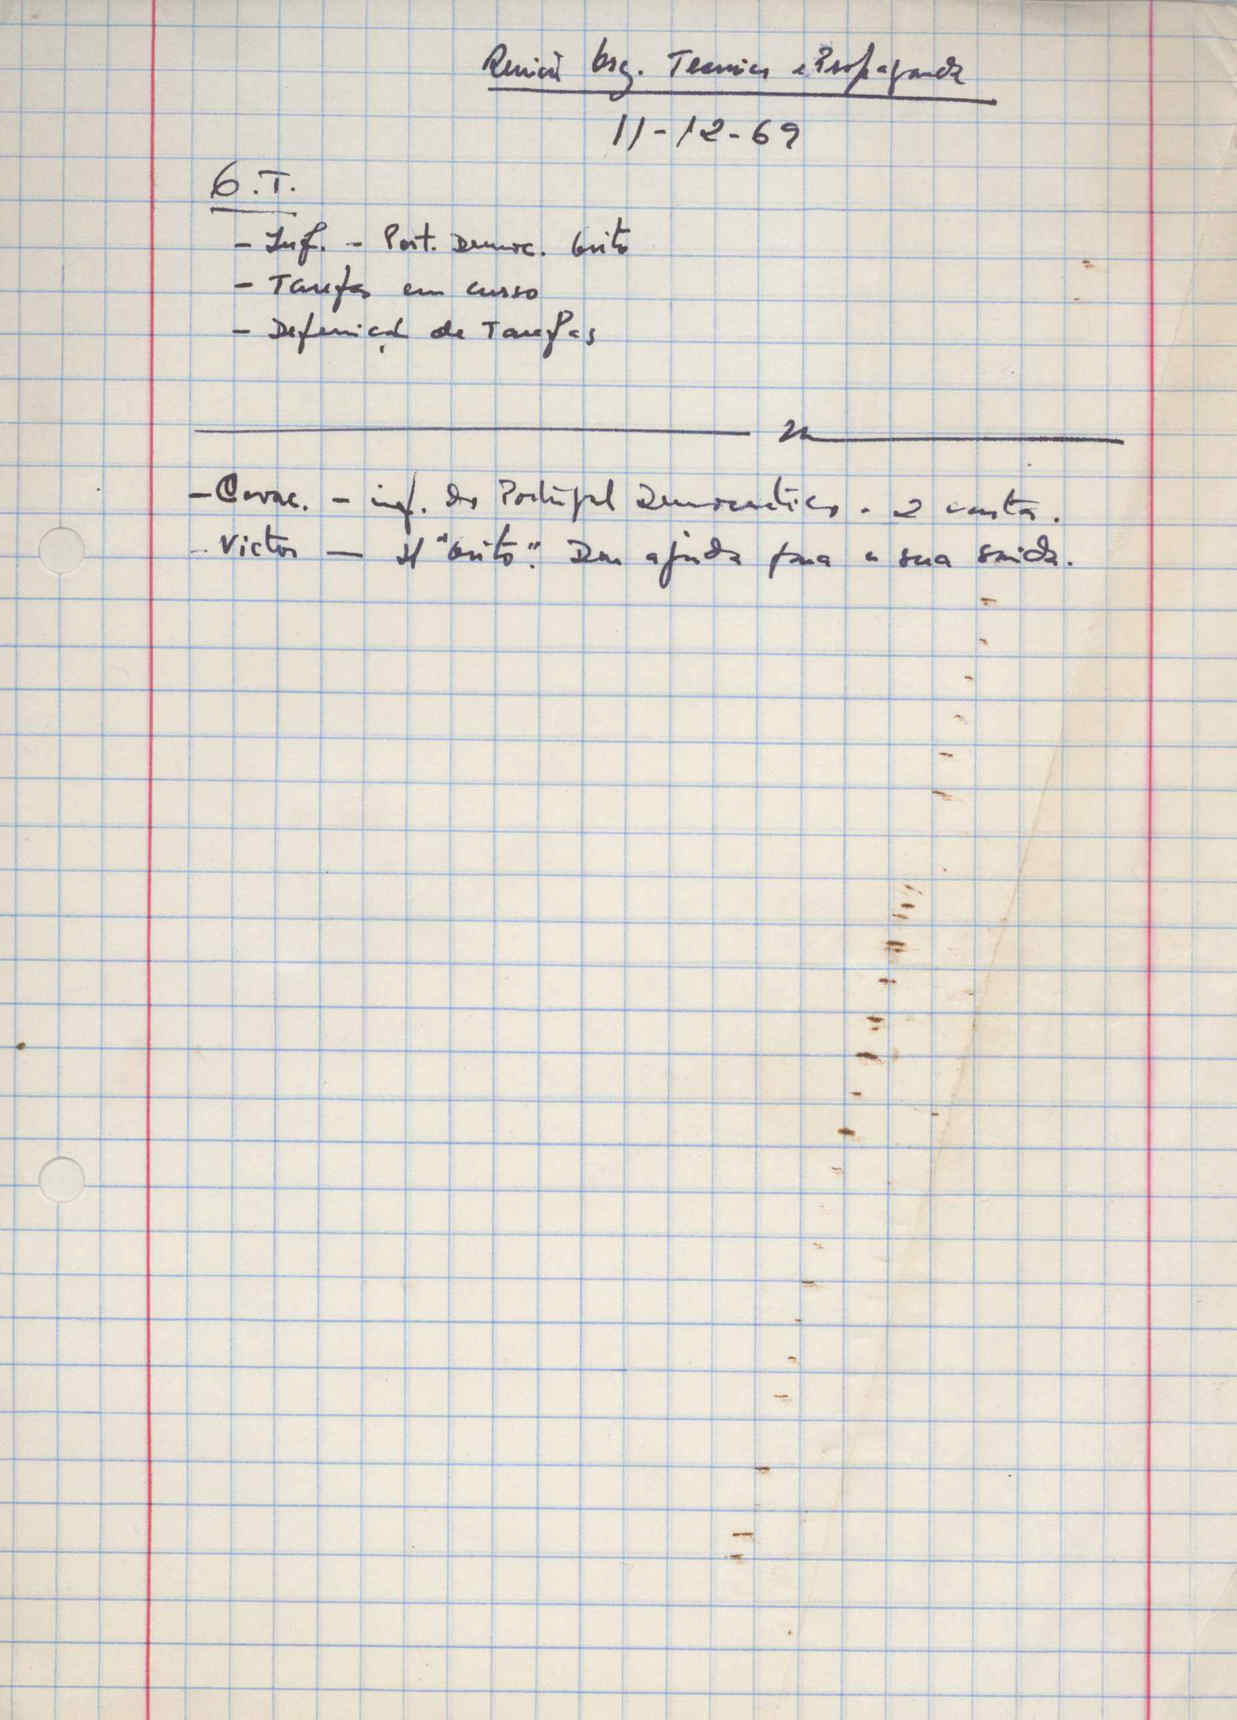 Reunião Org. Tecnica e Propaganda
11-12-69
O.T.
- Inf. - Port. Democ. Grito
- Tarefas em curso
- Defenição de Tarefas
- Covac. - inf. do Portugal Democratico. 2 carta.
- Victor — "Grito". Dar ajuda para a sua saida.